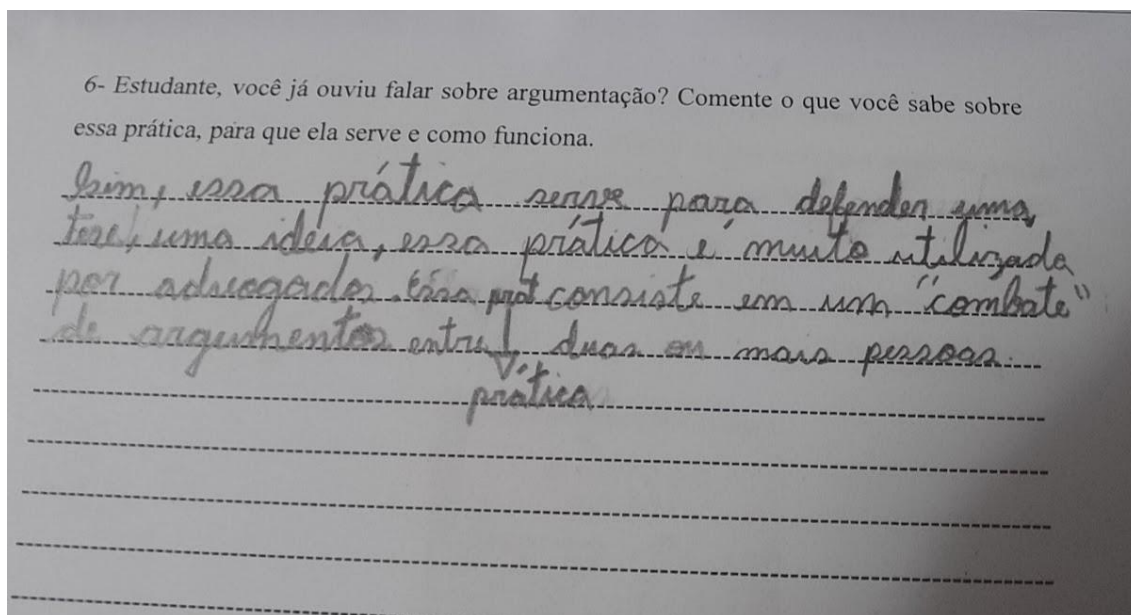 6- Estudante, você já ouviu falar sobre argumentação? Comente o que você sabe sobre
essa prática, para que ela serve e como funciona.
Sim, essa prática serve para defender uma
tese, uma ideia, essa prática é muito utilizada
por advogados. Essa prat consiste em um "combate"
de argumentos entre duas ou mais pessoas.
prática